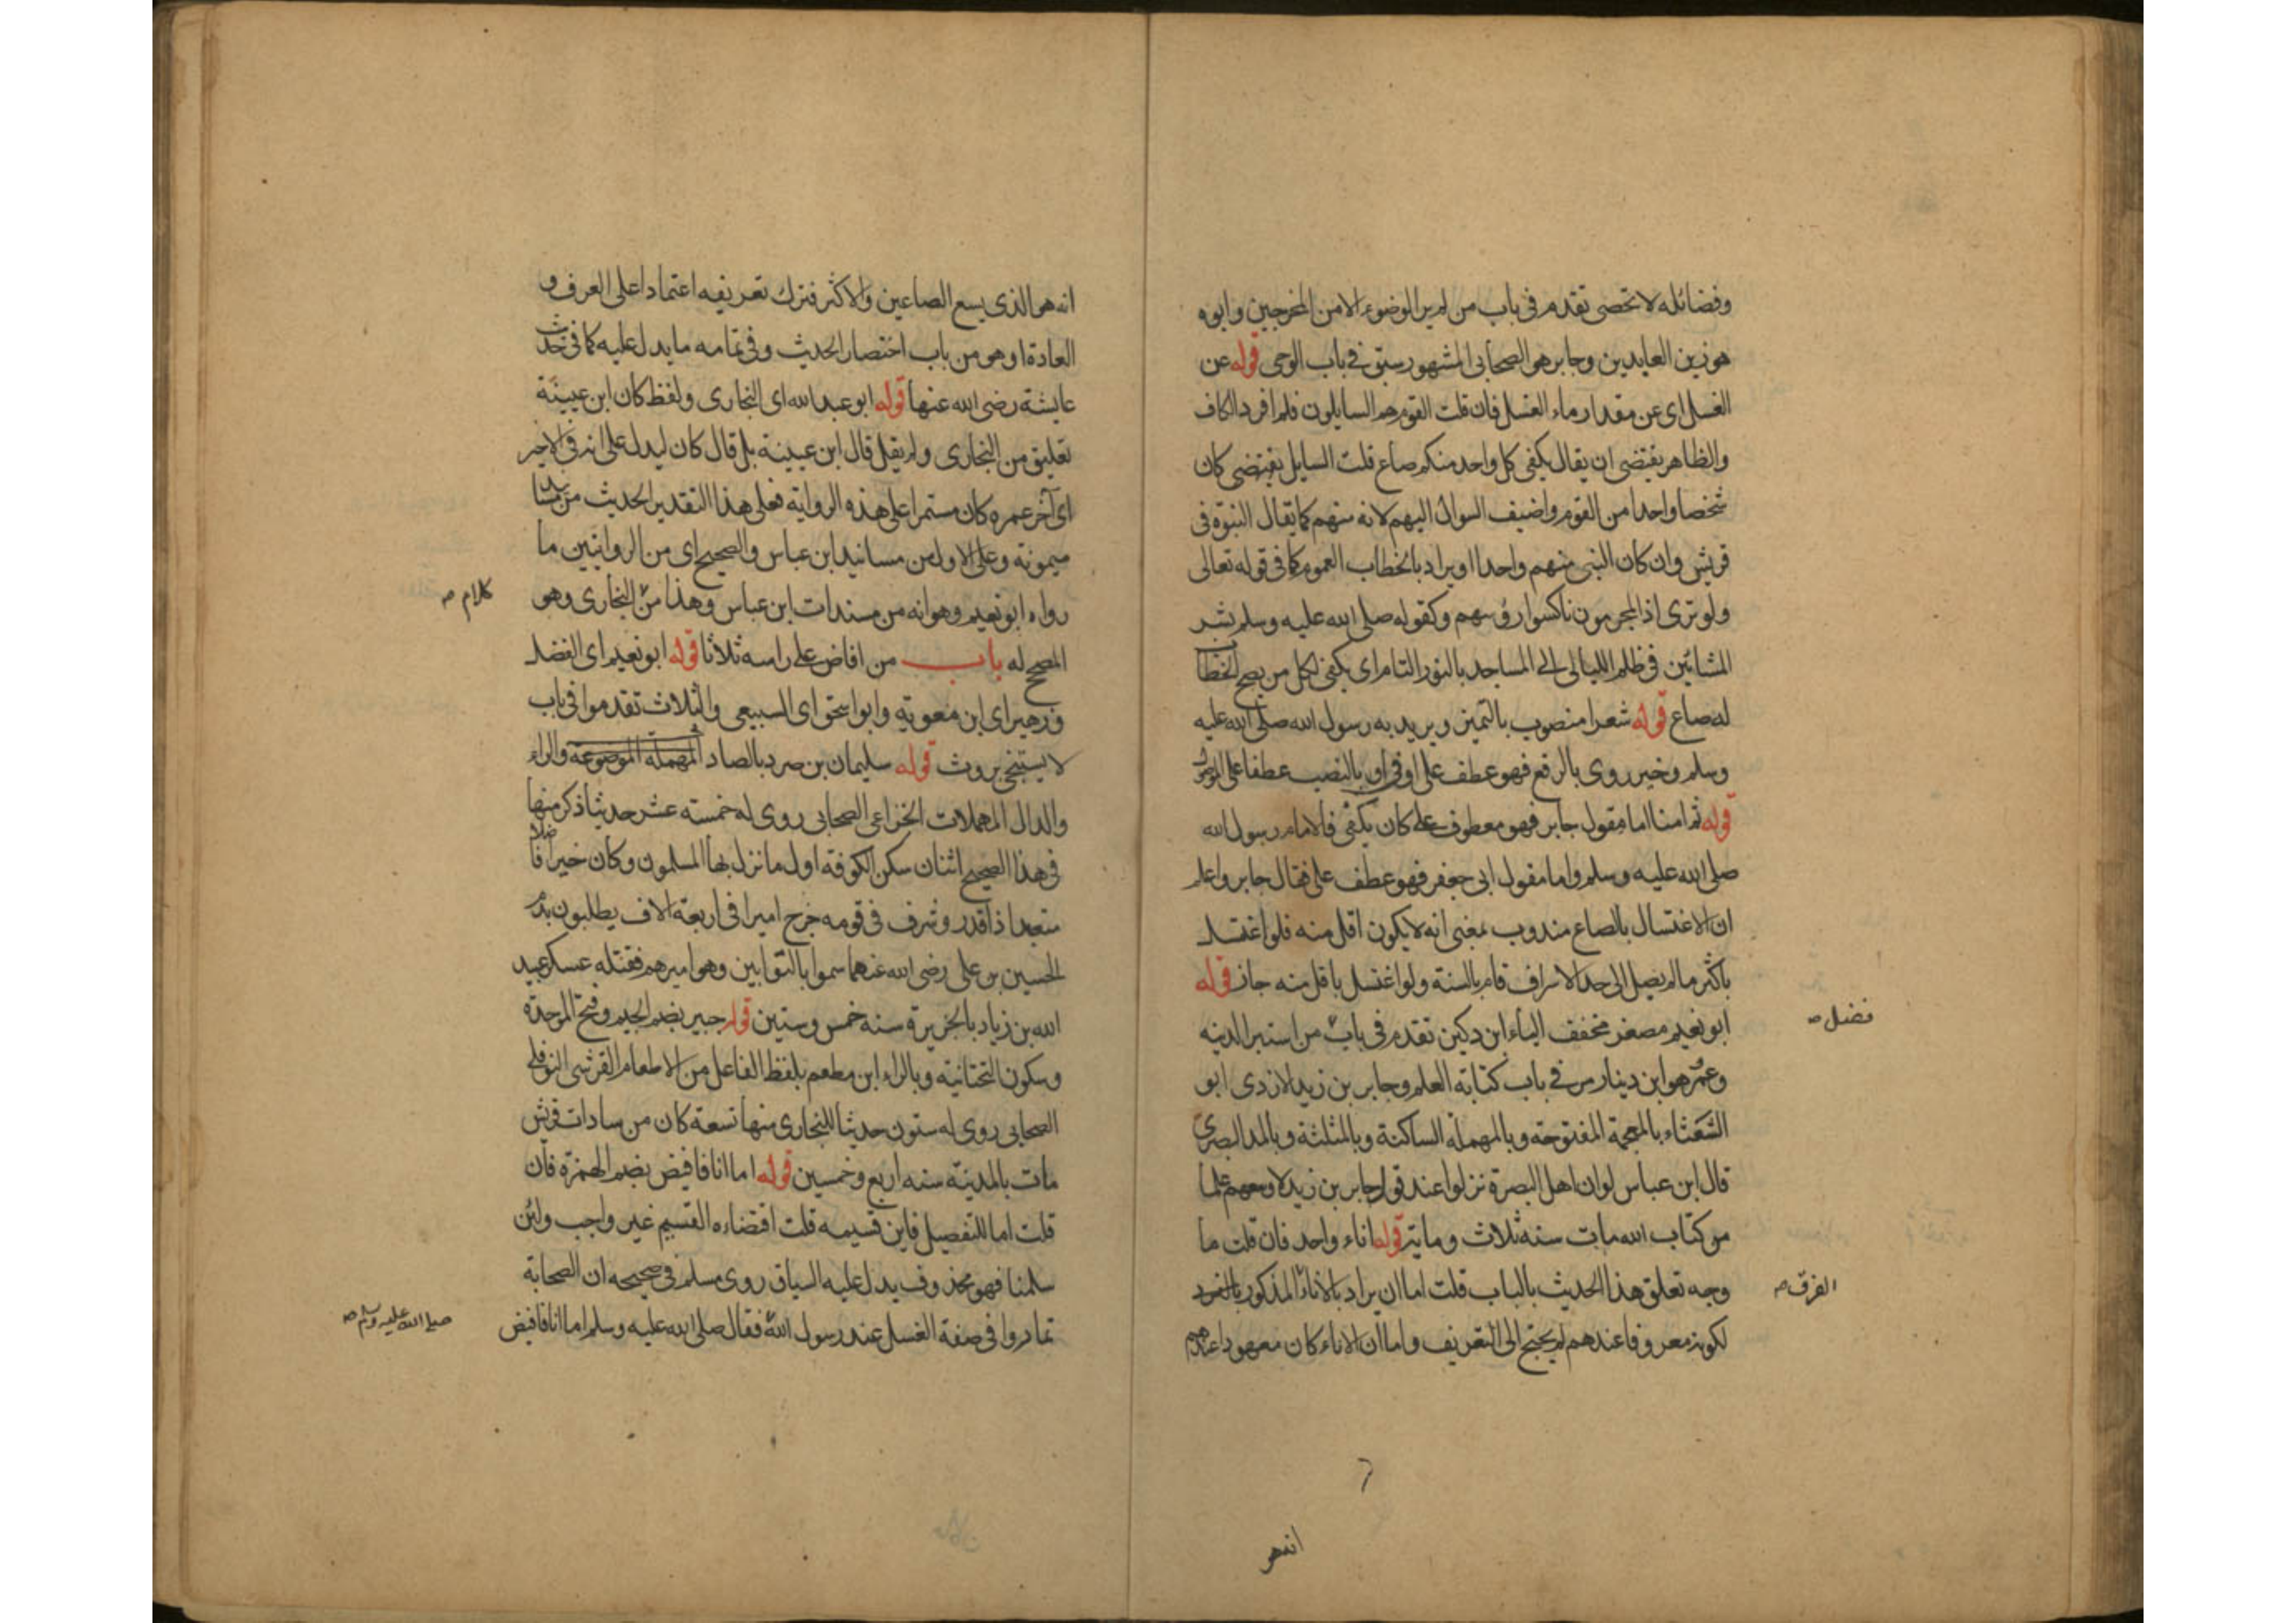 وفضائله لا تحصى تقدم فى باب من لم ير الوضوء الا من المخرجين وابوه
هو زين العابدين وجابر هو الصحابى المشهور سبق فى باب الوحى قوله عن
الغسل اى عن مقدار ماء الغسل فان قلت القوم هم السايلون فلم افرد الكاف
والظاهر يقتضى ان يقال يكفى كل واحد منكم صاع قلت السايل كان
شخصا واحدا من القوم واضيف السوال اليهم لانه منهم كما يقال النبوة فى
قريش وان كان النبى منهم واحدا او يراد بالخطاب العموم كما فى قوله تعالى
ولو ترى اذ المجرمون ناكسوا رؤسهم وكقوله صلى الله عليه وسلم بشر
المشائين فى ظلم الليالى الى المساجد بالنور التام اى يكفى لكل من يصح الخطاب
له صاع قوله شعرا منصوب بالتمييز ويريد به رسول الله صلى الله عليه
وسلم وخير روى بالرفع فهو عطف على اوفى او بالنصب عطفا على الموصول
قوله ثم امنا اما مقول جابر فهو معطوف على كان يكفى فالامام رسول الله
صلى الله عليه وسلم واما مقول ابى جعفر فهو عطف على فقال جابر واعلم
ان الاغتسال بالصاع مندوب بمعنى انه لا يكون اقل منه فلو اغتسل
باكثر ما لم يصل الى حد الاسراف قام بالسنة ولو اغتسل باقل منه جاز قوله
ابو نعيم مصغر مخفف الياء ابن دكين تقدم فى باب من استبرا لدينه
فضل صح
وعمرو هو ابن دينار مر فى باب كتابة العلم وجابر بن زيد الازدى ابو
الشعثاء بالمعجمة المفتوحة وبالمهملة الساكنة وبالمثلثة وبالمد البصرى
قال ابن عباس لو ان اهل البصرة نزلوا عند قول جابر بن زيد لاوسعهم علما
من كتاب الله مات سنة ثلاث ومايه قوله اناء واحد فان قلت ما
وجه تعلق هذا الحديث بالباب قلت اما ان يراد بالاناء المذكور
الفرق صح
لكونه معروفا عندهم لم يحتج الى التعريف واما ان الاناء كان معهودا عندهم
انه هو
انه هو الذى يسع الصاعين والاكثر فترك تعريفه اعتمادا على العرف و
العادة او هو من باب اختصار الحديث وفى تمامه ما يدل عليه كما فى حديث
عايشة رضى الله عنها قوله ابو عبد الله اى البخارى ولفظ كان ابن عيينة
تعليق من البخارى ولم يقل قال ابن عيينة بل قال كان ليدل على انه فى الاخير
اى آخر عمره كان مستمرا على هذه الرواية فعلى هذا التقدير الحديث من مسانيد
ميمونة وعلى الاول من مسانيد ابن عباس والصحيح اى من الروايتين ما
رواه ابو نعيم وهو انه من مسندات ابن عباس وهذا من البخارى وهو
كلام صح
المصحح له باب من افاض على راسه ثلاثا قوله ابو نعيم اى الفضل
وزهير اى ابن معوية وابو اسحق اى السبيعى والثلاث تقدموا فى باب
لا يستنجى بروث قوله سليمان بن صرد بالصاد المهملة الموضوعة والراء
والدال المهملات الخزاعى الصحابى روى له خمسة عشر حديثا ذكر منها
فى هذا الصحيح اثنان سكن الكوفة اول ما نزل بها المسلمون وكان خيرا فاضلا
متعبدا ذا قدر وشرف فى قومه خرج اميرا فى اربعة الاف يطلبون بدم
الحسين بن على رضى الله عنهما سموا بالتوابين وهو اميرهم فقتله عسكر عبيد
الله بن زياد بالجزيرة سنه خمس وستين قوله جبير بضم الجيم وفتح الموحدة
وسكون التحتانية وبالراء ابن مطعم بلفظ الفاعل من الاطعام القرشى النوفلى
الصحابى روى له ستون حديثا للبخارى منها تسعة كان من سادات قريش
مات بالمدينة سنه اربع وخمسين قوله اما انا فافيض بضم الهمزة فان
قلت اما للتفصيل فاين قسيمه قلت اقتضاءه القسيم غير واجب ولئن
سلمنا فهو محذوف يدل عليه السياق روى مسلم فى صحيحه ان الصحابة
تماروا فى صفة الغسل عند رسول الله فقال صلى الله عليه وسلم اما انا فافيض
صلى الله عليه وسلم صح